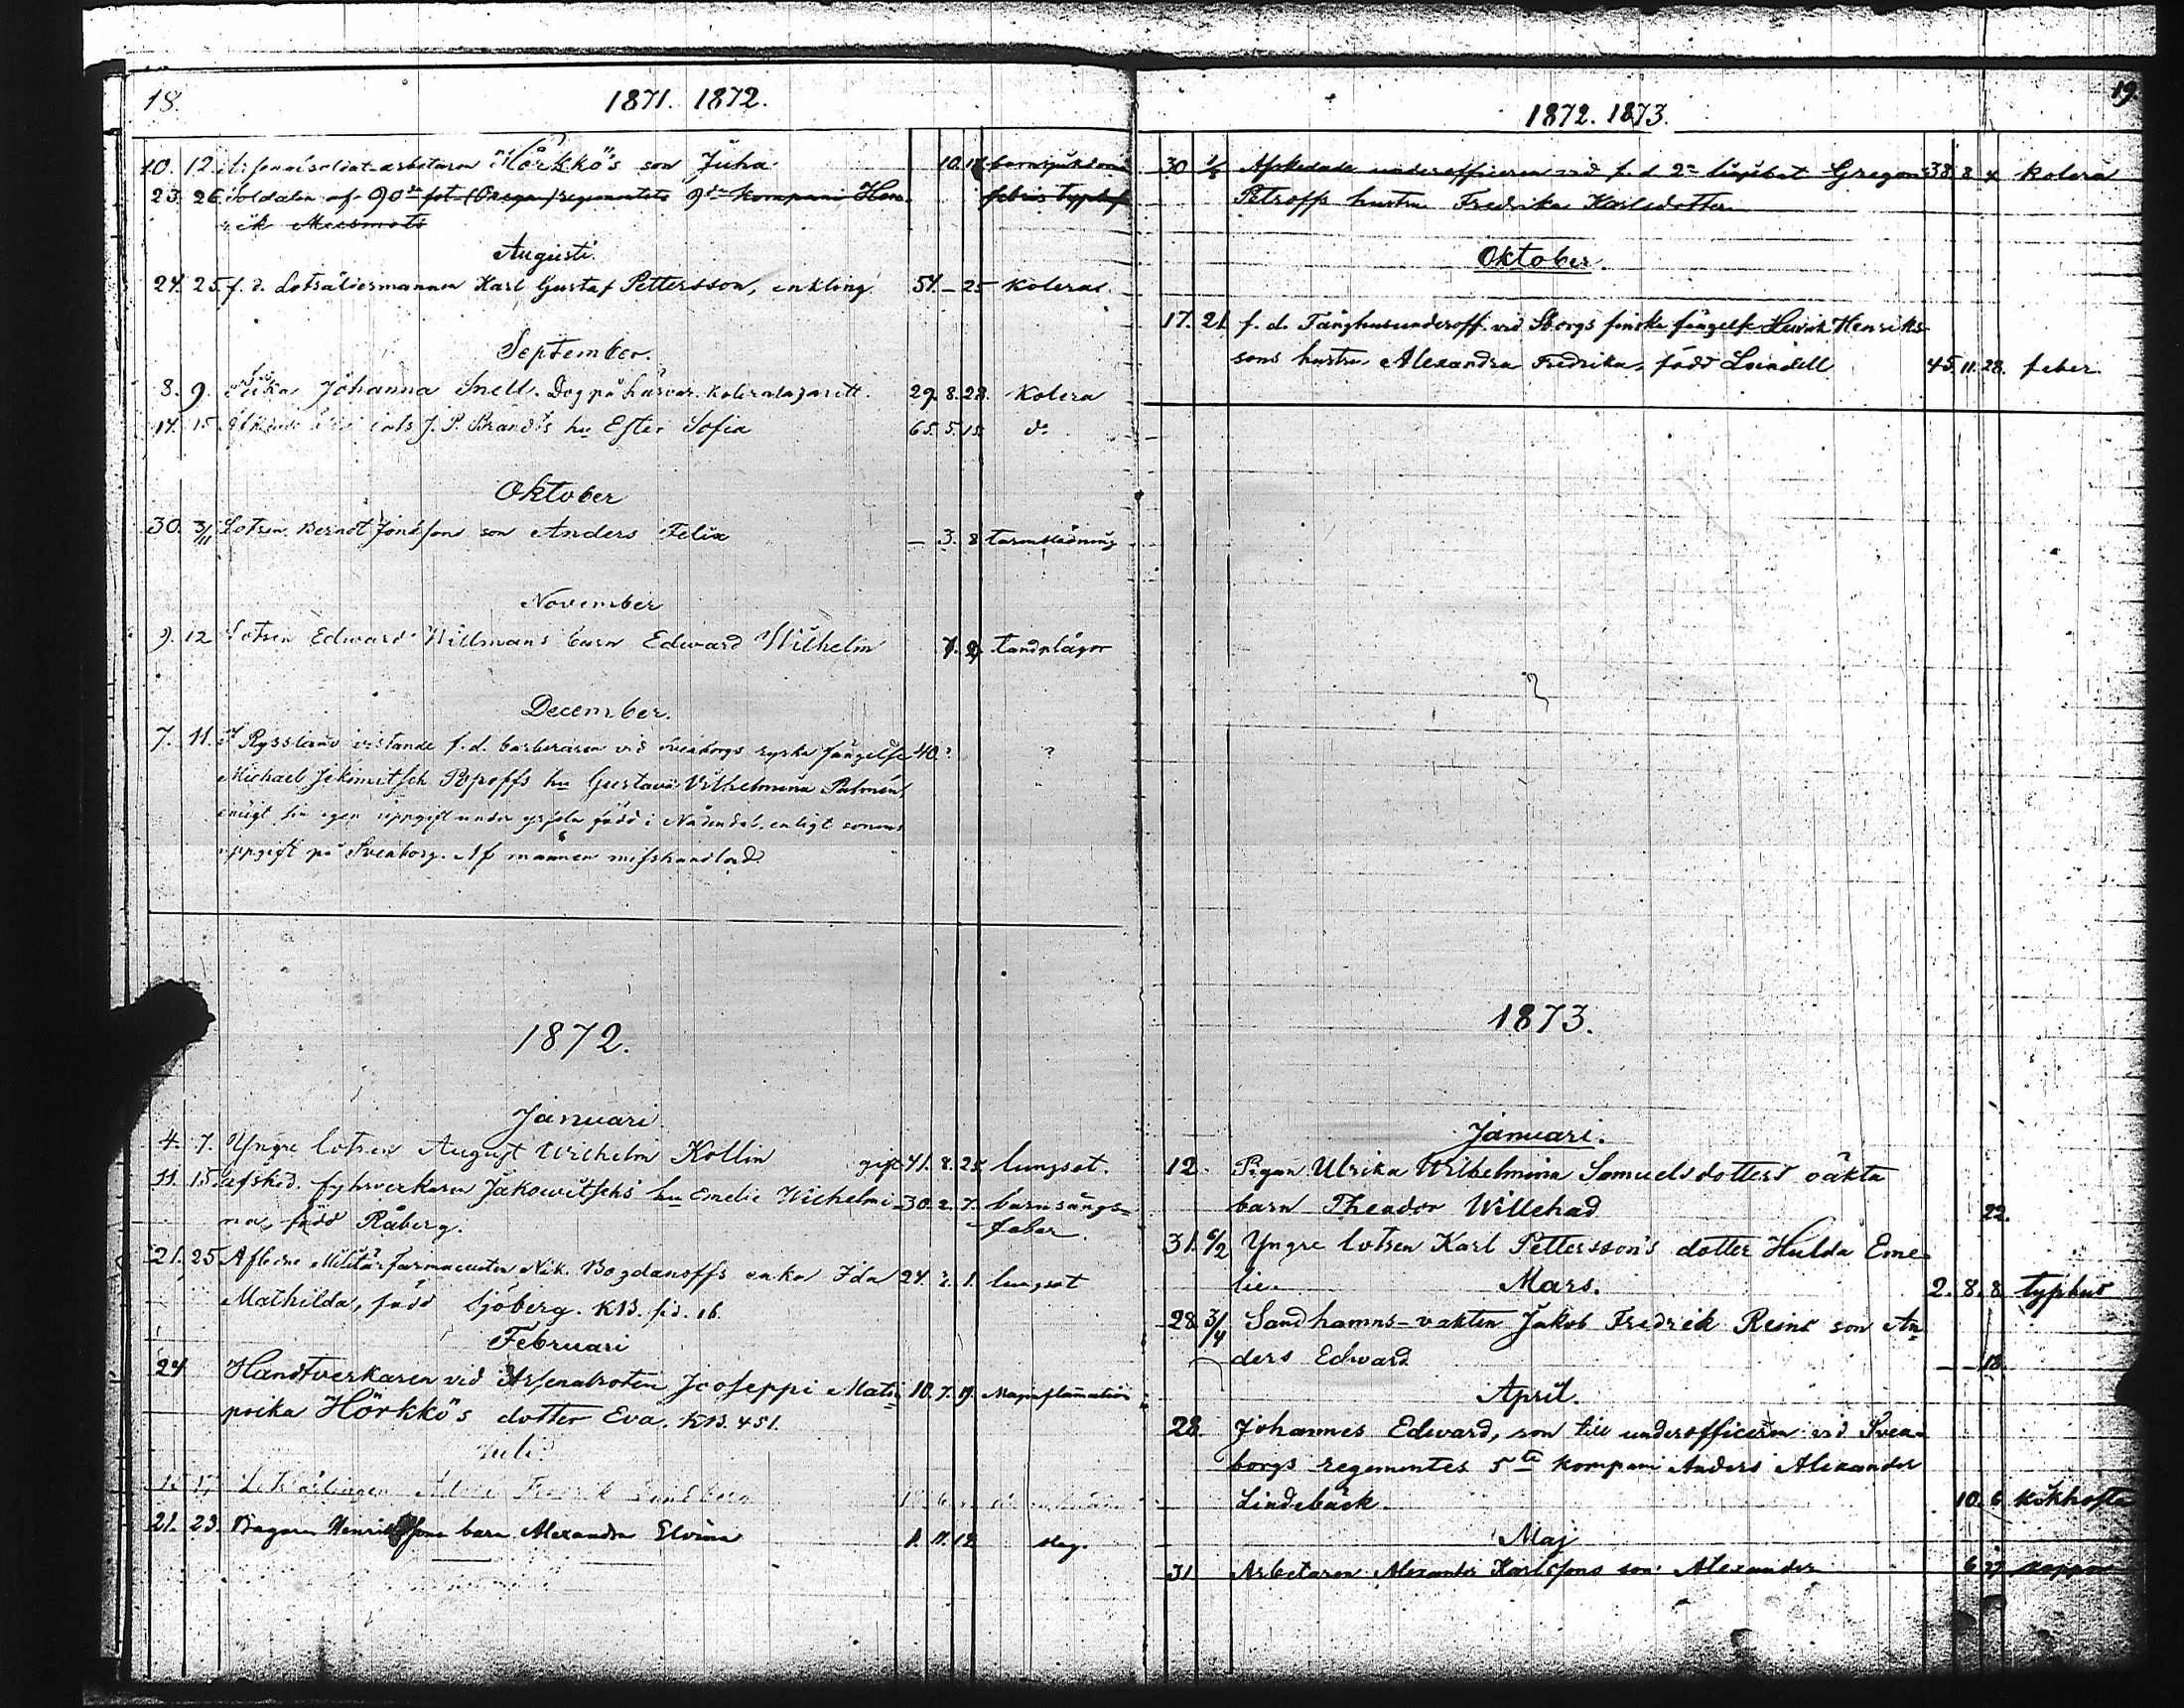 18.
1871. 1872.
10. 12. Arsenalsoldat-arbetaren Hörkkö's son Juha 10. 18
23. 26. Soldaten af 90de fot-(Onega) regementets 9de kompani Hen- febris typhos
rik
Augusti.
24. 25. f. d. Lotsåldermannen Karl Gustaf Pettersson, enkling. 54. - 25 Kolera.
September.
8. 9. Johanna Snell. Dog på Långör. koleralazarett. 29. 8. 28. Kolera
14. 15. J. P. Brandts hu Ester Sofia 65. 5. 15. do
Oktober
30. 3/11 Lotsen Berndt Jonssons son Anders Felix - 3. 8 tarmblödning
November
9. 12 Lotsen Edward Willmans barn Edward Wilhelm 7. 2 tandplågor
December.
7. 11. I Ryssland vistande f. d. barberaren vid Sveaborgs ryska fängelse 40. ? ?
Michael Jekimitsch Popoffs hu Gustava Vilhelmina Palmén,
enligt sin egen uppgift under född i Nådendal, enligt sonens
uppgift på Sveaborg. Af mannen misshandlad.
1872.
Januari.
4. 7. Yngre lotsen August Wilhelm Kollin gift 41. 8. 25 lungsot.
11. 15 Afsked. fyhrverkaren Jakowitschs hu Emelie Wilhelmi- 30. 2. 7. barnsängs=
na, född Råberg. feber.
21. 25 Aflidne Militärfarmaceuten Nik. Bogdanoffs enka Ida 24. 2. 1. lungsot
Mathilda, född Sjöberg. KB. sid. 16.
Februari
24 Handtverkaren vid Arsenalroten Jooseppi Matin 10. 7. 19. Maginflamation
poika Hörkkö's dotter Eva. KB. 451.
Juli.
15. 17 Fredrik Sundberg
21. 23. Bagaren Henrikssons barn Alexandra Elvina 1. 11. 12 slag.
19.
1872. 1873.
30 1/5 Afskedade underofficeren vid f. d. 2a linjebat Gregori 38. 8 4 kolera
Petroffs hustru Fredrika Karlsdotter
Oktober.
17. 21. f. d. Fånghusunderoff. vid Sborgs finska fängelse Henrik Henriks-
sons hustru Alexandra Fredrika, född Lindell 45. 11. 28. feber.
1873.
Januari.
12. Pigan Ulrika Wilhelmina Samuelsdotters oäkta
barn Theodor Willehad 22.
31. 6/2 Yngre lotsen Karl Pettersson's dotter Hulda Eme-
lie. 2. 8. 8. typhus
Mars.
28 3/4 Sandhamns-vakten Jakob Fredrik Reins son An
ders Edward - - 18.
April.
28. Johannes Edward, son till underofficeren vid Svea-
borgs regementes 5te kompani Anders Alexander
Lindebäck. 10. 6 kikhosta
Maj
31 Arbetaren Alexander Karlssons son Alexander 6 27 koppor